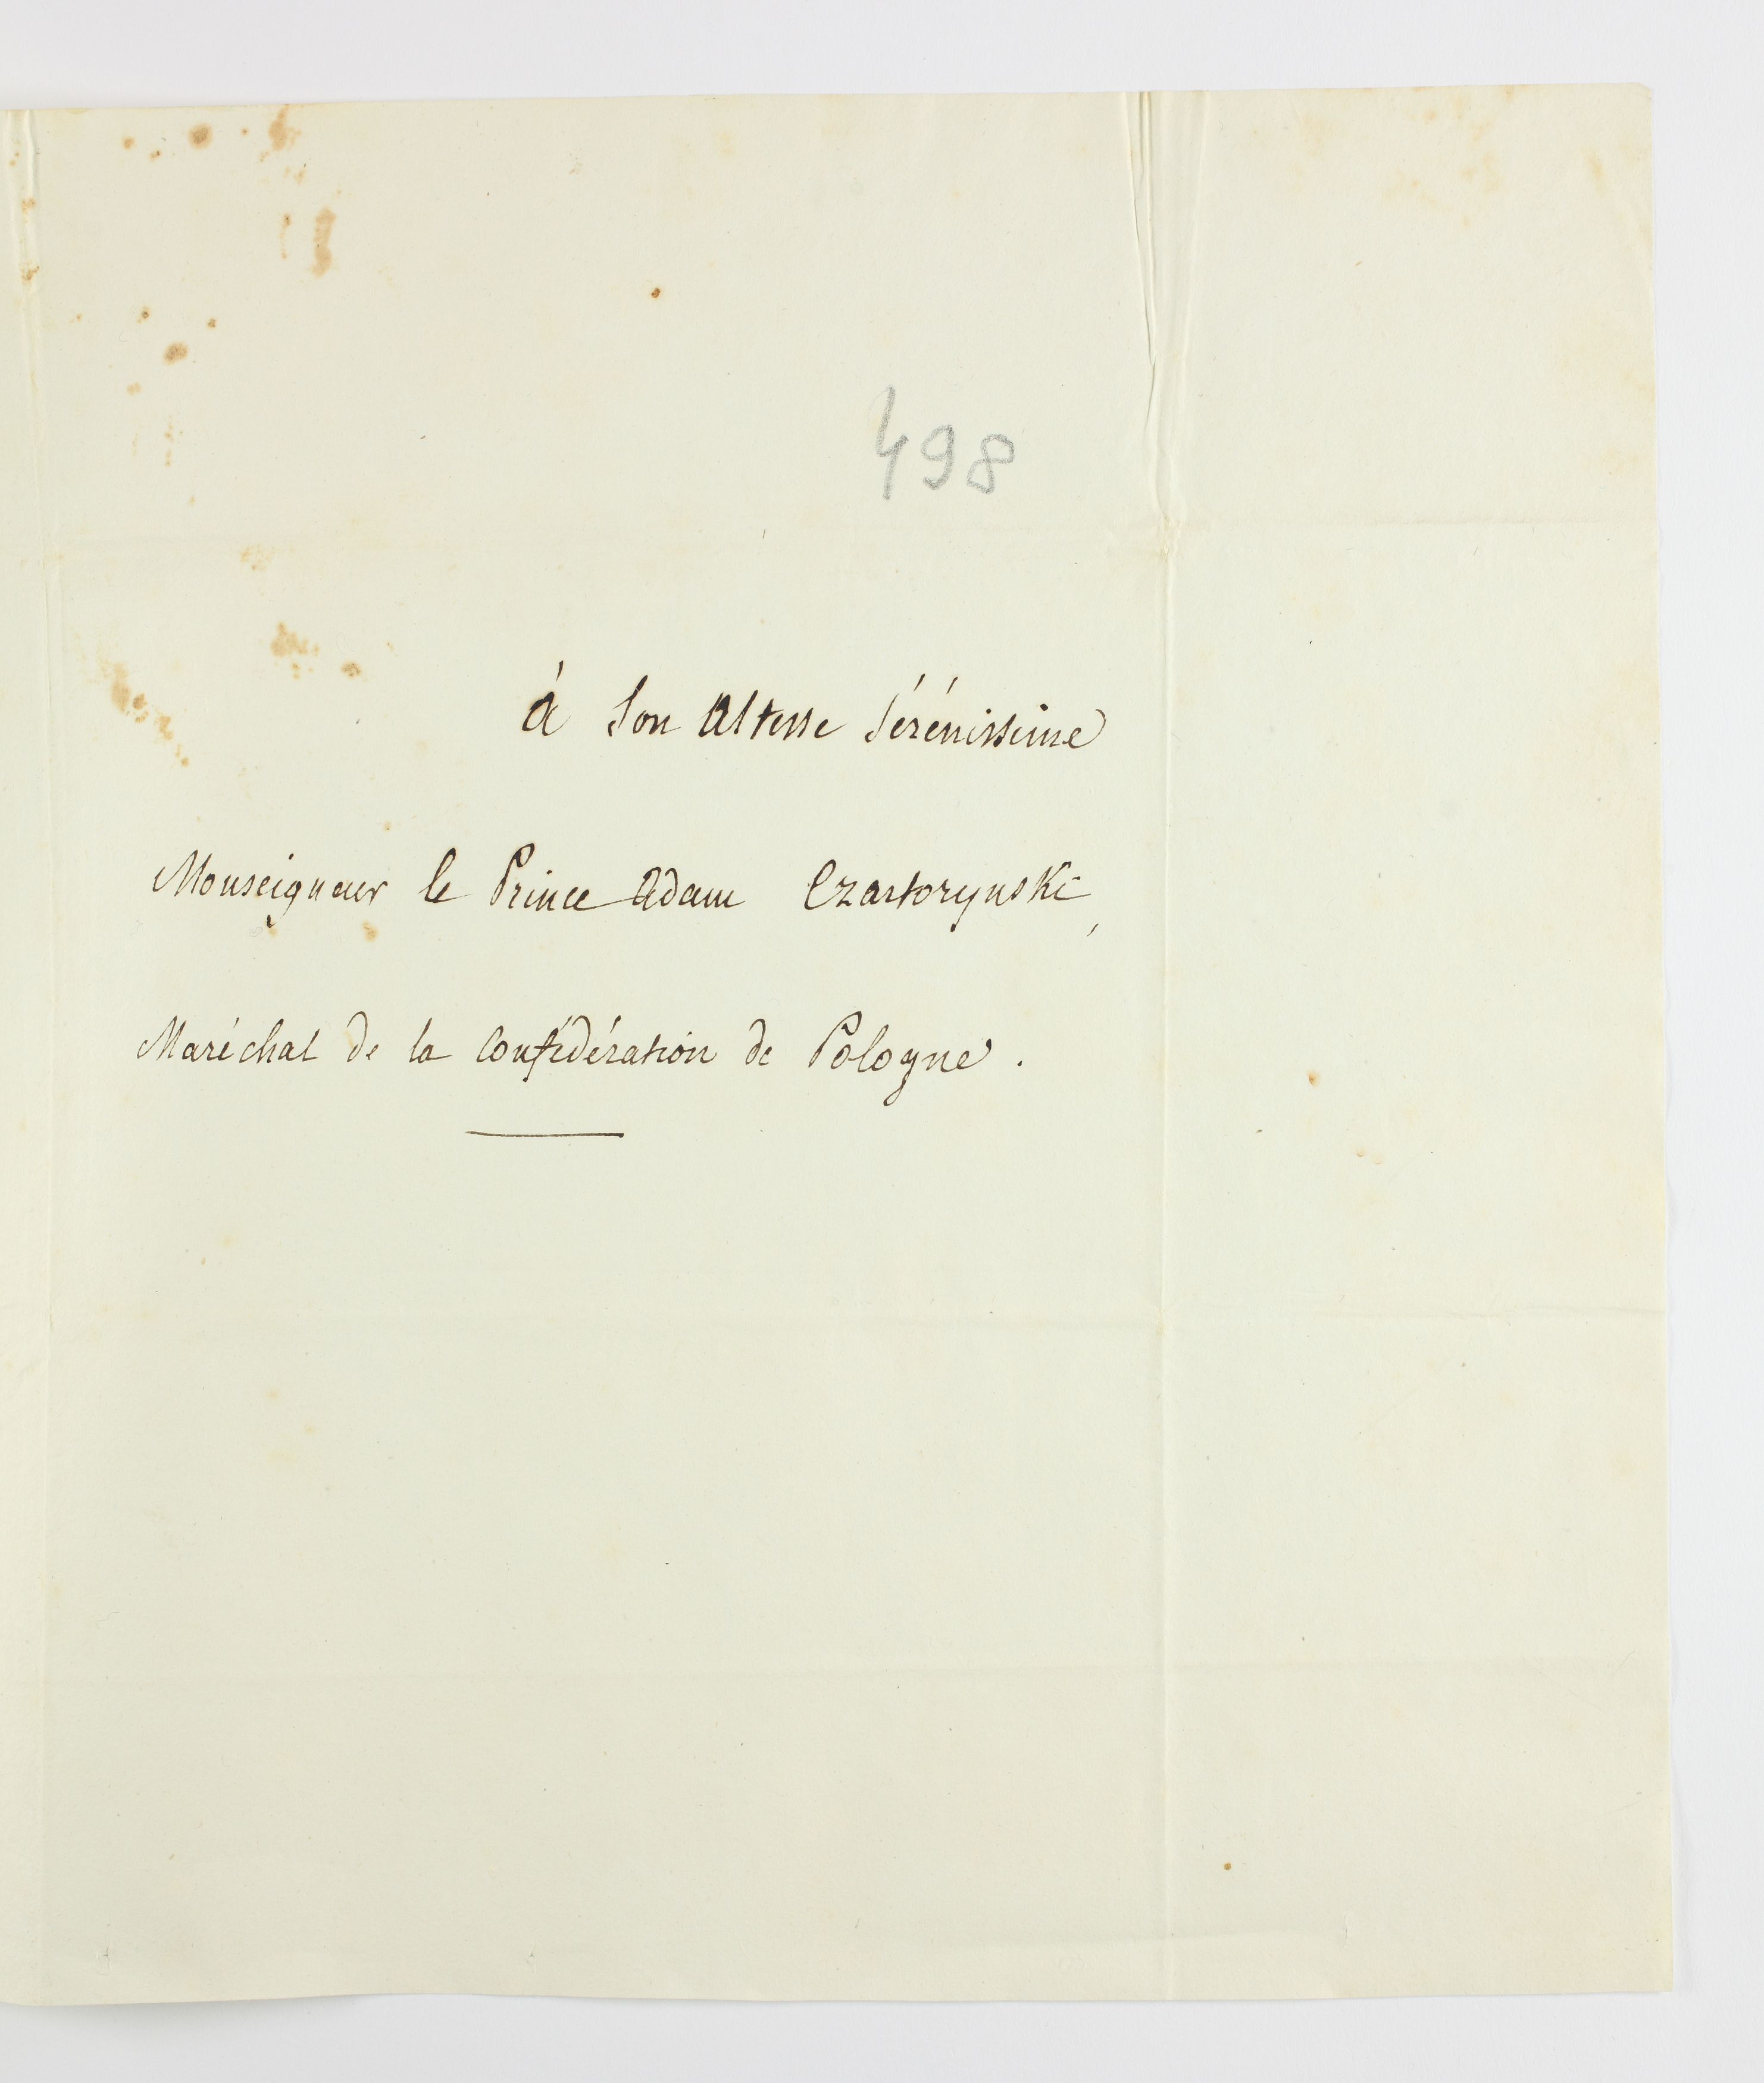 498
à Son Altesse Sérénissime
Monseigneur le Prince Adam Czartorynski,
Maréchal de la Confédération de Pologne.